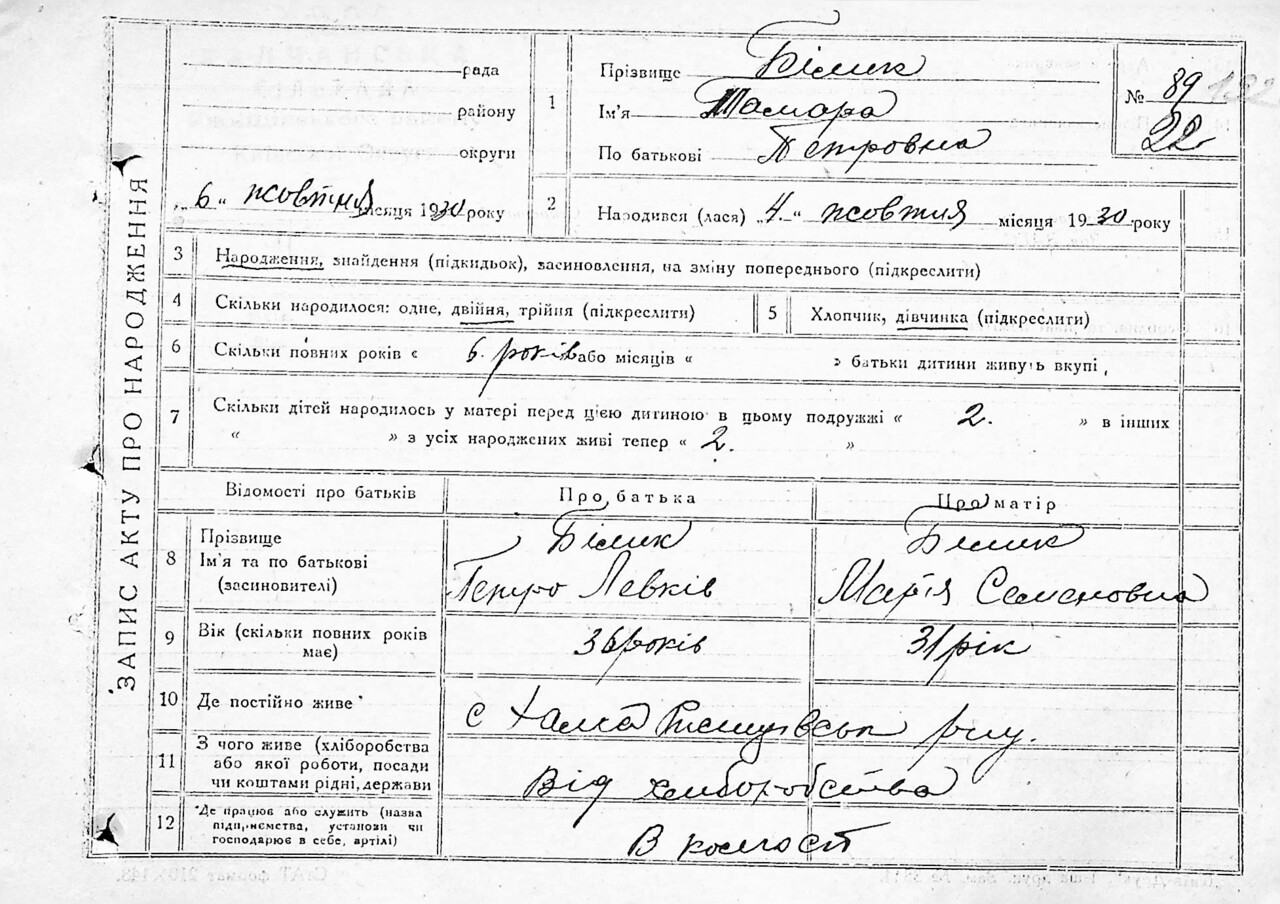 ЗАПИС АКТУ ПРО НАРОДЖЕННЯ
рада
району
округи
„ 6 “ жовтня місяця 1930 року
1 Прізвище Білик
Ім'я Тамара
По батькові Петровна
№ 89
22
2 Народився (лася) „ 4. “ жовтня місяця 1930 року
3 Народження, знайдення (підкидьок), засиновлення, на зміну попереднього (підкреслити)
4 Скільки народилося: одне, двійня, трійня (підкреслити)
5 Хлопчик, дівчинка (підкреслити)
6 Скільки повних років « 6. років або місяців « » батьки дитини живуть вкупі
7 Скільки дітей народилось у матері перед цією дитиною в цьому подружжі « 2. » в інших
« » з усіх народжених живі тепер « 2. »
Відомості про батьків Про батька Про матір
8 Прізвище Білик Білик
Ім'я та по батькові Петро Левків Марія Семеновна
(засиновителі)
9 Вік (скільки повних років 36 років 31 рік
має)
10 Де постійно живе с
11 З чого живе (хліборобства
або якої роботи, посади Від хліборобства
чи коштами рідні, держави
12 Де працює або служить (назва
підприємства, установи чи В
господарює в себе, артілі)